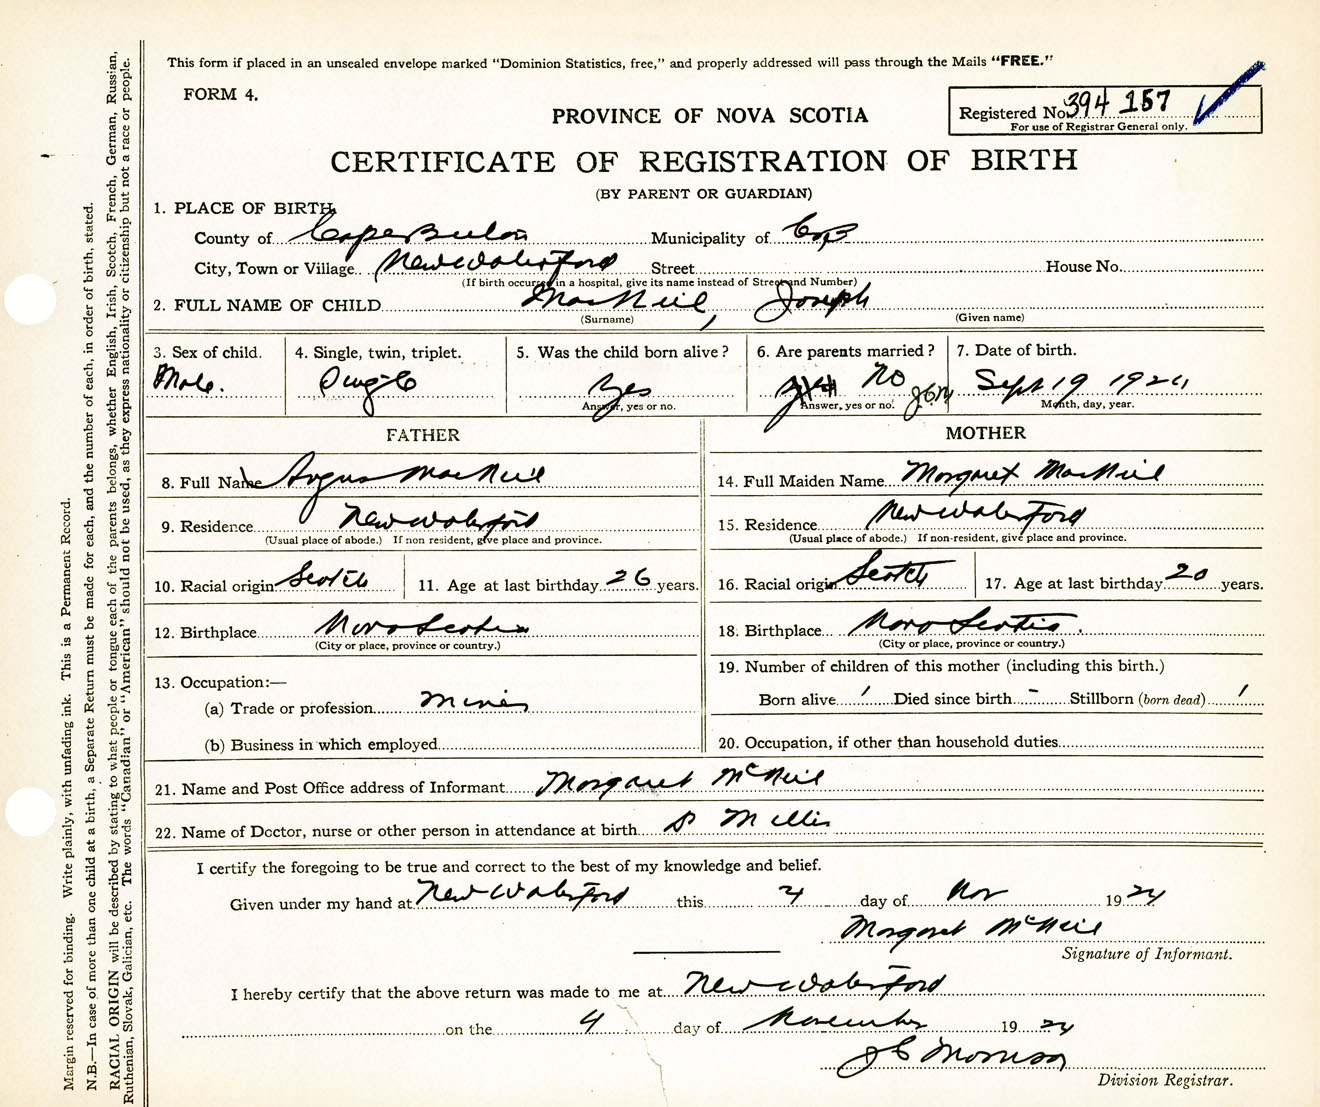 This form if placed in an unsealed envelope marked "Dominion Statistics, free," and properly addressed will pass through the Mails "FREE."
FORM 4.
PROVINCE OF NOVA SCOTIA
Registered No. 394 157
For use of Registrar General only.
CERTIFICATE OF REGISTRATION OF BIRTH
(BY PARENT OR GUARDIAN)
1. PLACE OF BIRTH
County of Cape Breton Municipality of C B
City, Town or Village New Waterford Street House No.
(If birth occurred in a hospital, give its name instead of Street and Number)
2. FULL NAME OF CHILD MacNeil, Joseph
(Surname) (Given name)
3. Sex of child. 4. Single, twin, triplet. 5. Was the child born alive? 6. Are parents married? 7. Date of birth.
Male. Single Yes No Sept 19 1924
Answer, yes or no. Answer, yes or no. Month, day, year.
FATHER MOTHER
8. Full Name Angus MacNeil 14. Full Maiden Name Margaret MacNeil
9. Residence New Waterford 15. Residence New Waterford
(Usual place of abode.) If non resident, give place and province. (Usual place of abode.) If non-resident, give place and province.
10. Racial origin Scotch 11. Age at last birthday 26 years. 16. Racial origin Scotch 17. Age at last birthday 20 years.
12. Birthplace Nova Scotia 18. Birthplace Nova Scotia.
(City or place, province or country.) (City or place, province or country.)
13. Occupation:— 19. Number of children of this mother (including this birth.)
(a) Trade or profession Miner Born alive 1 Died since birth - Stillborn (born dead) 1
(b) Business in which employed 20. Occupation, if other than household duties
21. Name and Post Office address of Informant Margaret McNeil
22. Name of Doctor, nurse or other person in attendance at birth
I certify the foregoing to be true and correct to the best of my knowledge and belief.
Given under my hand at New Waterford this 4 day of Nov 1924
Margaret McNeil
Signature of Informant.
I hereby certify that the above return was made to me at New Waterford
on the 4 day of November 1924
J C Morrison
Division Registrar.
Margin reserved for binding. Write plainly, with unfading ink. This is a Permanent Record.
N.B.—In case of more than one child at a birth, a Separate Return must be made for each, and the number of each, in order of birth, stated.
RACIAL ORIGIN will be described by stating to what people or tongue each of the parents belongs, whether English, Irish, Scotch, French, German, Russian,
Ruthenian, Slovak, Galician, etc. The words "Canadian" or "American" should not be used, as they express nationality or citizenship but not a race or people.